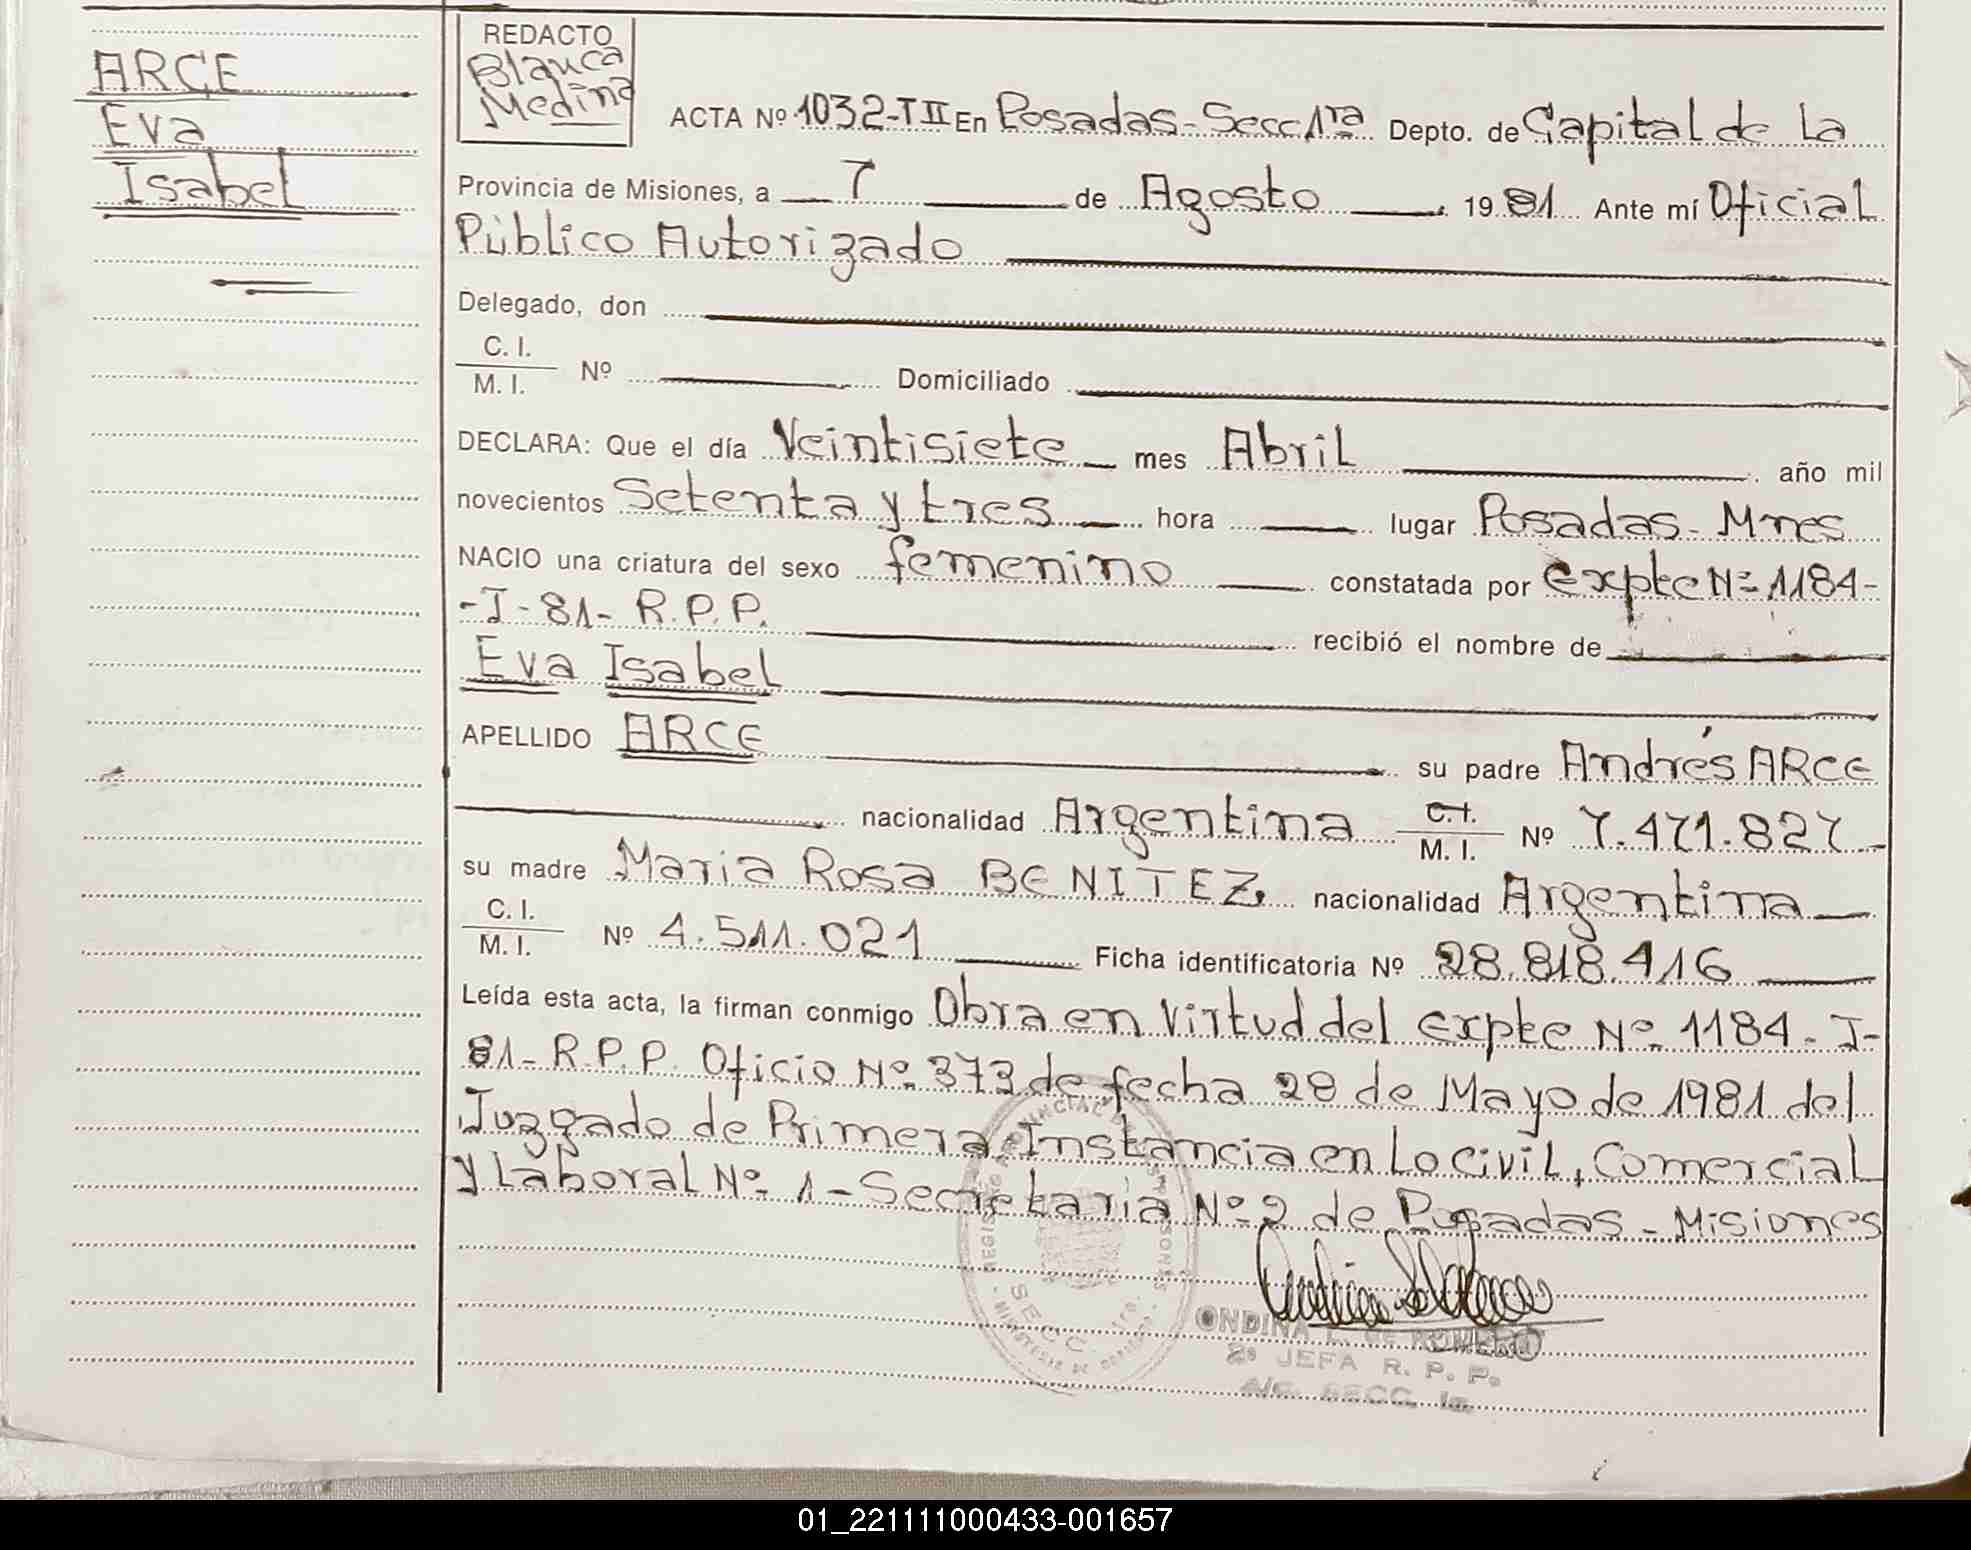 ARCE
Eva
Isabel
REDACTO
Blanca
Medina
ACTA Nº 1032-T II En Posadas - Secc 1ra Depto. de Capital de La
Provincia de Misiones, a 7 de Agosto 1981 Ante mí Oficial
Público Autorizado
Delegado, don
C. I.
M. I. Nº Domiciliado
DECLARA: Que el día Veintisiete mes Abril año mil
novecientos Setenta y tres hora lugar Posadas - Mnes
NACIO una criatura del sexo femenino constatada por Expte Nº 1184-
-J-81- R.P.P. recibió el nombre de
Eva Isabel
APELLIDO ARCE su padre Andrés ARCE
nacionalidad Argentina C. I. M. I. Nº 7.471.827
su madre Maria Rosa BENITEZ, nacionalidad Argentina
C. I.
M. I. Nº 4.511.021 Ficha identificatoria Nº 28.818.416
Leída esta acta, la firman conmigo Obra en Virtud del Expte Nº 1184 - J-
81- R.P.P. Oficio Nº 373 de fecha 28 de Mayo de 1981 del
Juzgado de Primera Instancia en Lo Civil, Comercial
y Laboral Nº 1 - Secretaria Nº 2 de Posadas - Misiones
REGISTRO PROVINCIAL PERSONAS
SECC. 1ra.
MINISTERIO DE GOBIERNO
ONDINA L. DE ROMERO
2º JEFA R. P. P.
A/C. SECC. 1a.
01_221111000433-001657